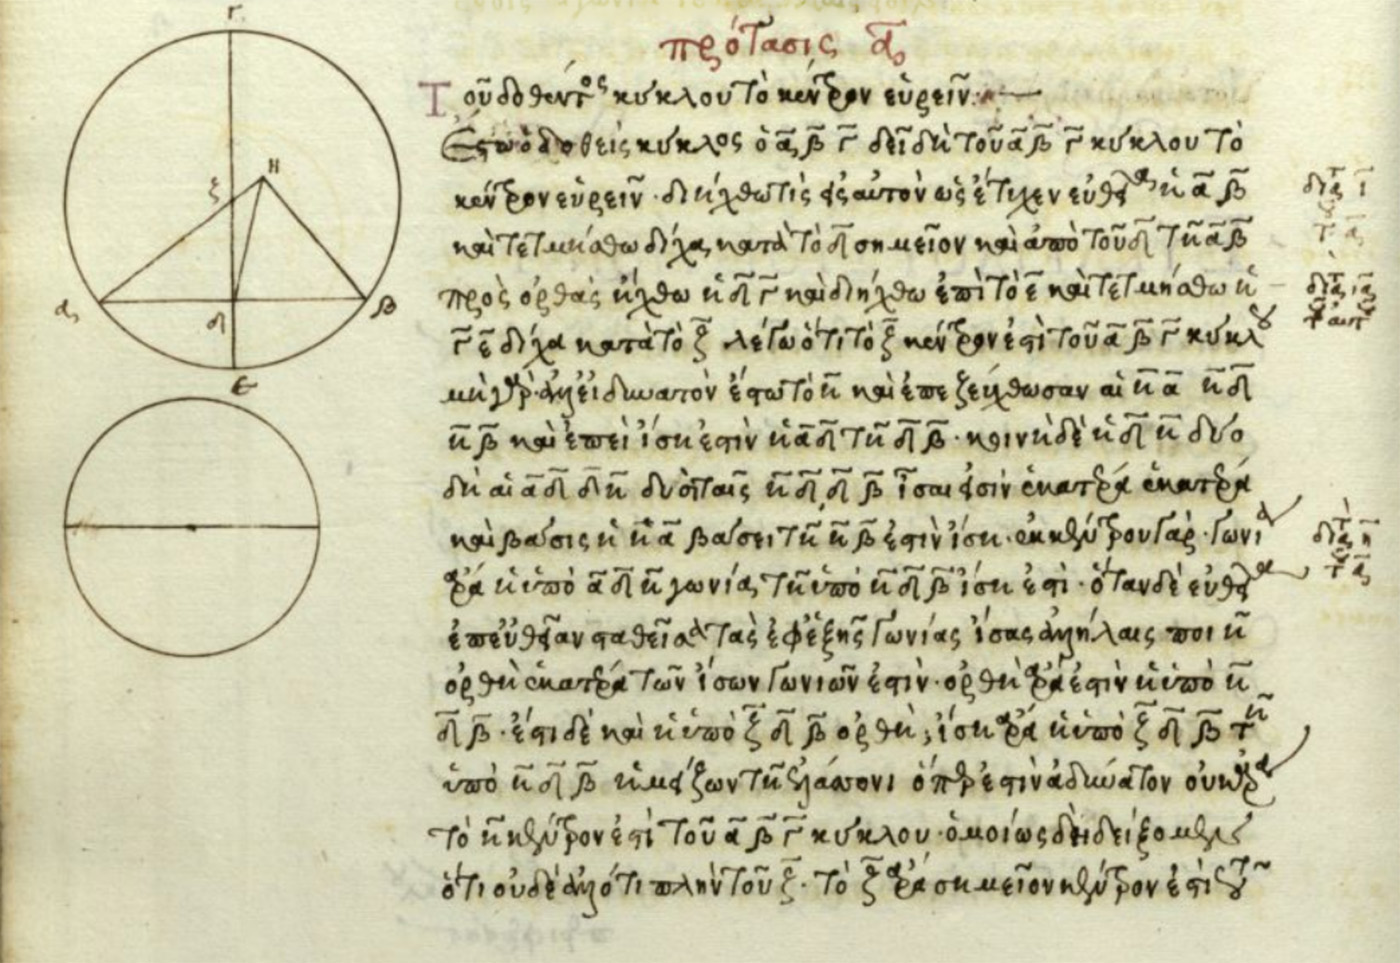 Γ
πρότασις α
Τοῦ δοθέντος κύκλου τὸ κέντρον εὑρεῖν
Ἔστω ὁ δοθεὶς κύκλος ὁ α β γ δεῖ δὴ τοῦ α β γ κύκλου τὸ
κέντρον εὑρεῖν · διήχθω τὶς εἰς αὐτὸν ὡς ἔτυχεν εὐθεῖα ἡ α β
καὶ τετμήσθω δίχα κατὰ τὸ δ σημεῖον καὶ ἀπὸ τοῦ δ τῇ α β
πρὸς ὀρθὰς ἤχθω ἡ δ γ καὶ διήχθω ἐπὶ τὸ ε καὶ τετμήσθω ἡ
γ ε δίχα κατὰ τὸ ξ λέγω ὅτι τὸ ξ κέντρον ἐστὶ τοῦ α β γ κύκλου
μὴ γὰρ · ἀλλ' εἰ δυνατὸν ἔστω τὸ η καὶ ἐπεζεύχθωσαν αἱ η α η δ
η β καὶ ἐπεὶ ἴση ἐστὶν ἡ α δ τῇ δ β · κοινὴ δὲ ἡ δ η δύο
δὴ αἱ α δ δ η δυσὶ ταῖς η δ δ β ἴσαι εἰσὶν ἑκατέρα ἑκατέρα
καὶ βάσις ἡ η α βάσει τῇ η β ἐστὶν ἴση · ἐκ κέντρου γὰρ · γωνία
ἄρα ἡ ὑπὸ α δ η γωνίᾳ τῇ ὑπὸ η δ β ἴση ἐστὶ · ὅταν δὲ εὐθεῖα
ἐπ' εὐθεῖαν σταθεῖσα τὰς ἐφεξῆς γωνίας ἴσας ἀλλήλαις ποιῇ
ὀρθὴ ἑκατέρα τῶν ἴσων γωνιῶν ἐστὶν · ὀρθὴ ἄρα ἐστὶν ἡ ὑπὸ η
δ β · ἔστι δὲ καὶ ἡ ὑπὸ ξ δ β ὀρθὴ, ἴση ἄρα ἡ ὑπὸ ξ δ β τῇ
ὑπὸ η δ β ἡ μείζων τῇ ἐλάττονι ὅπερ ἐστὶν ἀδύνατον οὐκ ἄρα
τὸ η κέντρον ἐστὶ τοῦ α β γ κύκλου · ὁμοίως δὲ δείξομεν
ὅτι οὐδὲ ἄλλο τι πλὴν τοῦ ξ · τὸ ξ ἄρα σημεῖον κέντρον ἐστὶ τοῦ
Η
ξ
α
δ
β
ε
διὰ ι
τ α
διὰ ια
τ αυτ
διὰ η
τ α